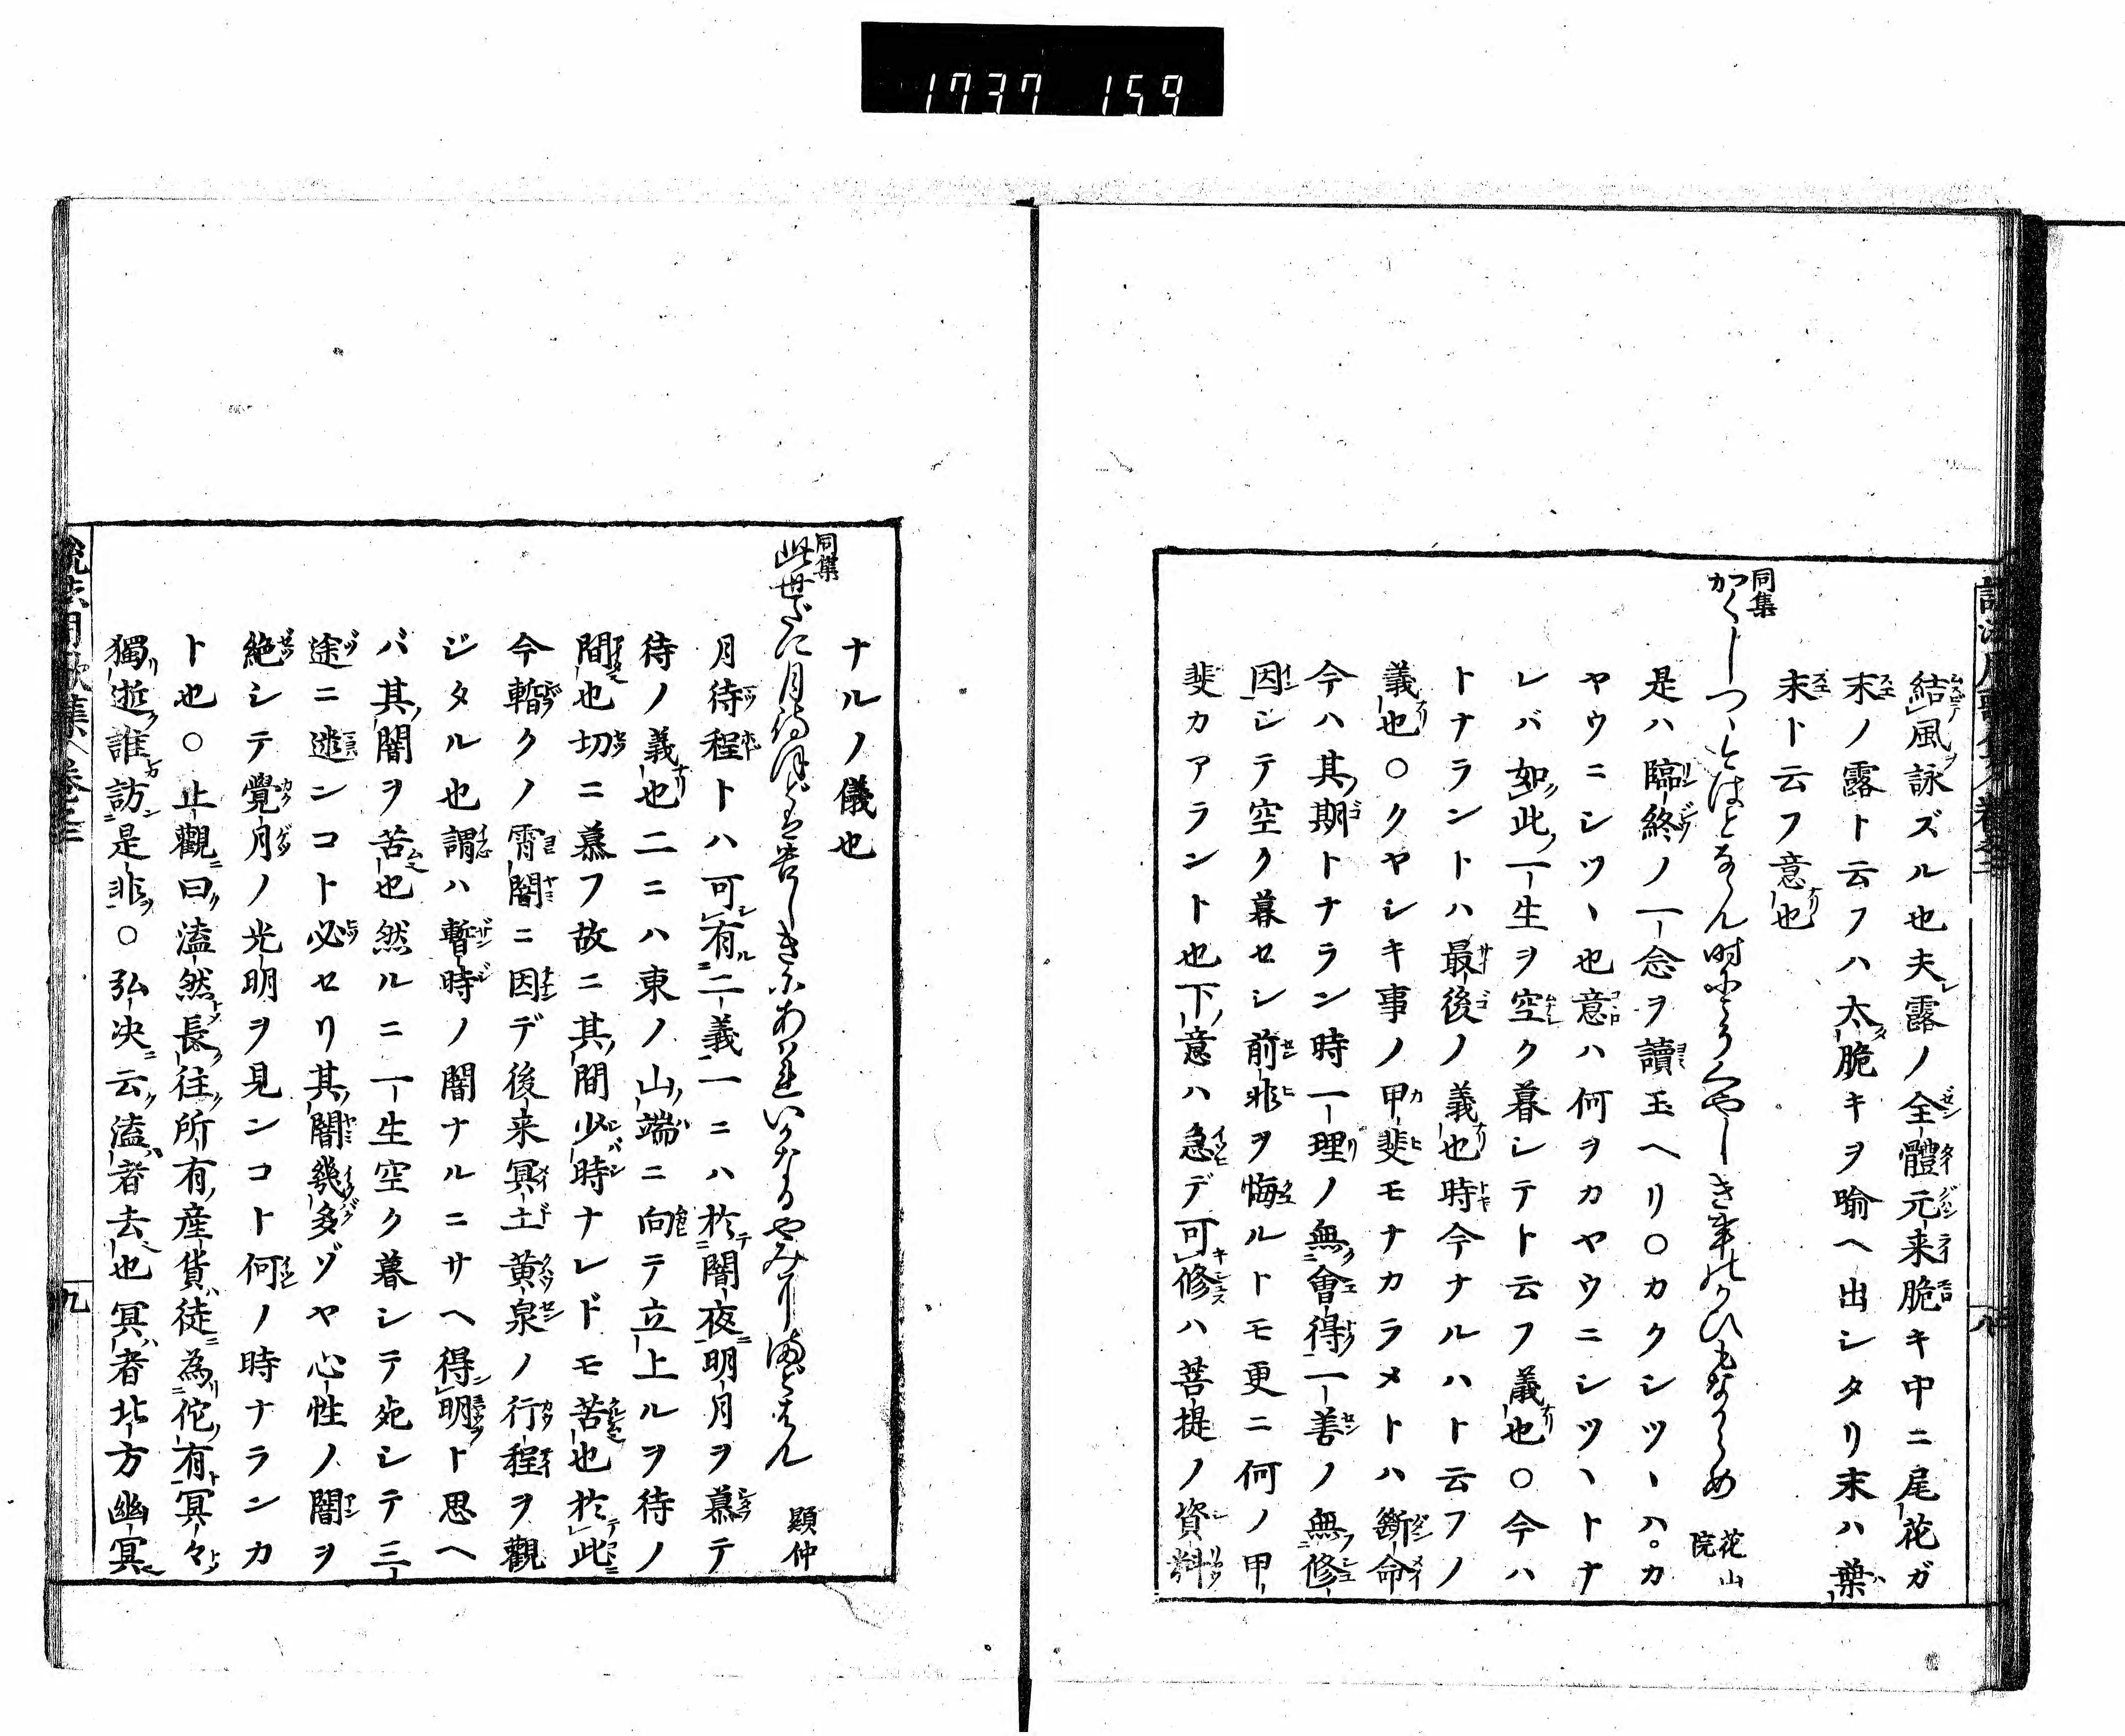 1737 159
結風詠ズル也夫露ノ全體元来脆キ中ニ尾花ガ
末ノ露ト云フハ太脆キヲ喩ヘ出シタリ末ハ葉
末ト云フ意也
同集
かくしつゝとはとなん時やくやしき事のかひもなからめ 花山院
是ハ臨終ノ一念ヲ讀玉ヘリ○カクシツヽハ。カ
ヤウニシツヽ也意ハ何ヲカヤウニシツヽトナ
レバ如此一生ヲ空ク暮シテト云フ義也○今ハ
トナラントハ最後ノ義也時今ナルハト云フノ
義也○クヤシキ事ノ甲斐モナカラメトハ斷命
今ハ其期トナラン時一理ノ無會得一善ノ無修
因シテ空ク暮セシ前非ヲ悔ルトモ更ニ何ノ甲
斐カアラント也下意ハ急デ可修ハ菩提ノ資料
八
ナルノ儀也
同集
此世だに月待ほどは苦しきにあはれいかなるやみにまどはん 顕仲
月待程トハ可有二義一ニハ於闇夜明月ヲ慕テ
待ノ義也二ニハ東ノ山端ニ向テ立上ルヲ待ノ
間也切ニ慕フ故ニ其間少時ナレドモ苦也於此
今暫クノ霄闇ニ因デ後来冥土黄泉ノ行程ヲ觀
ジタル也謂ハ暫時ノ闇ナルニサヘ得明ト思ヘ
バ其闇ヲ苦也然ルニ一生空ク暮シテ死シテ三
途ニ迷ンコト必セリ其闇幾多ゾヤ心性ノ闇ヲ
絶シテ覺月ノ光明ヲ見ンコト何ノ時ナランカ
ト也○止觀曰溘然長往所有産貨徒為佗有冥々
獨逝誰訪是非○弘决云溘者去也冥者北方幽冥
九